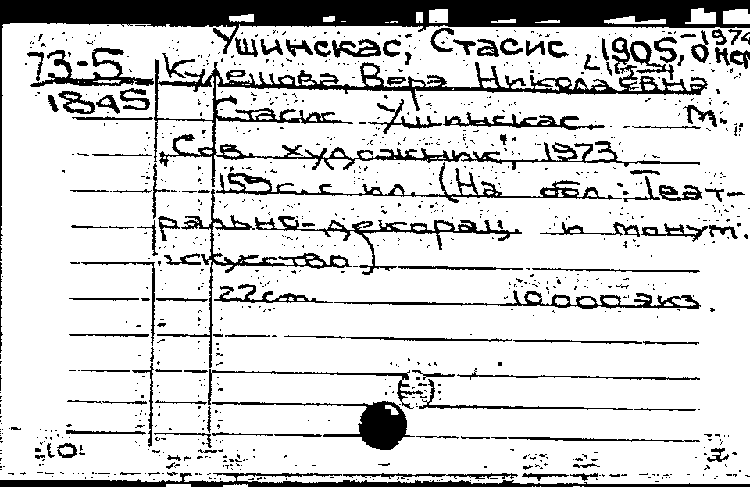 Ушинскас, Стасис, 1905, -1974
73-5 Кулешова, Вера Николаевна.
1845 Стасис Ушинскас. М.,
"Сов. художник", 1973.
159 с. с ил. (На обл.: Теат-
рально-декорац. и монум.
искусство)
22 cm. 10 000 экз.